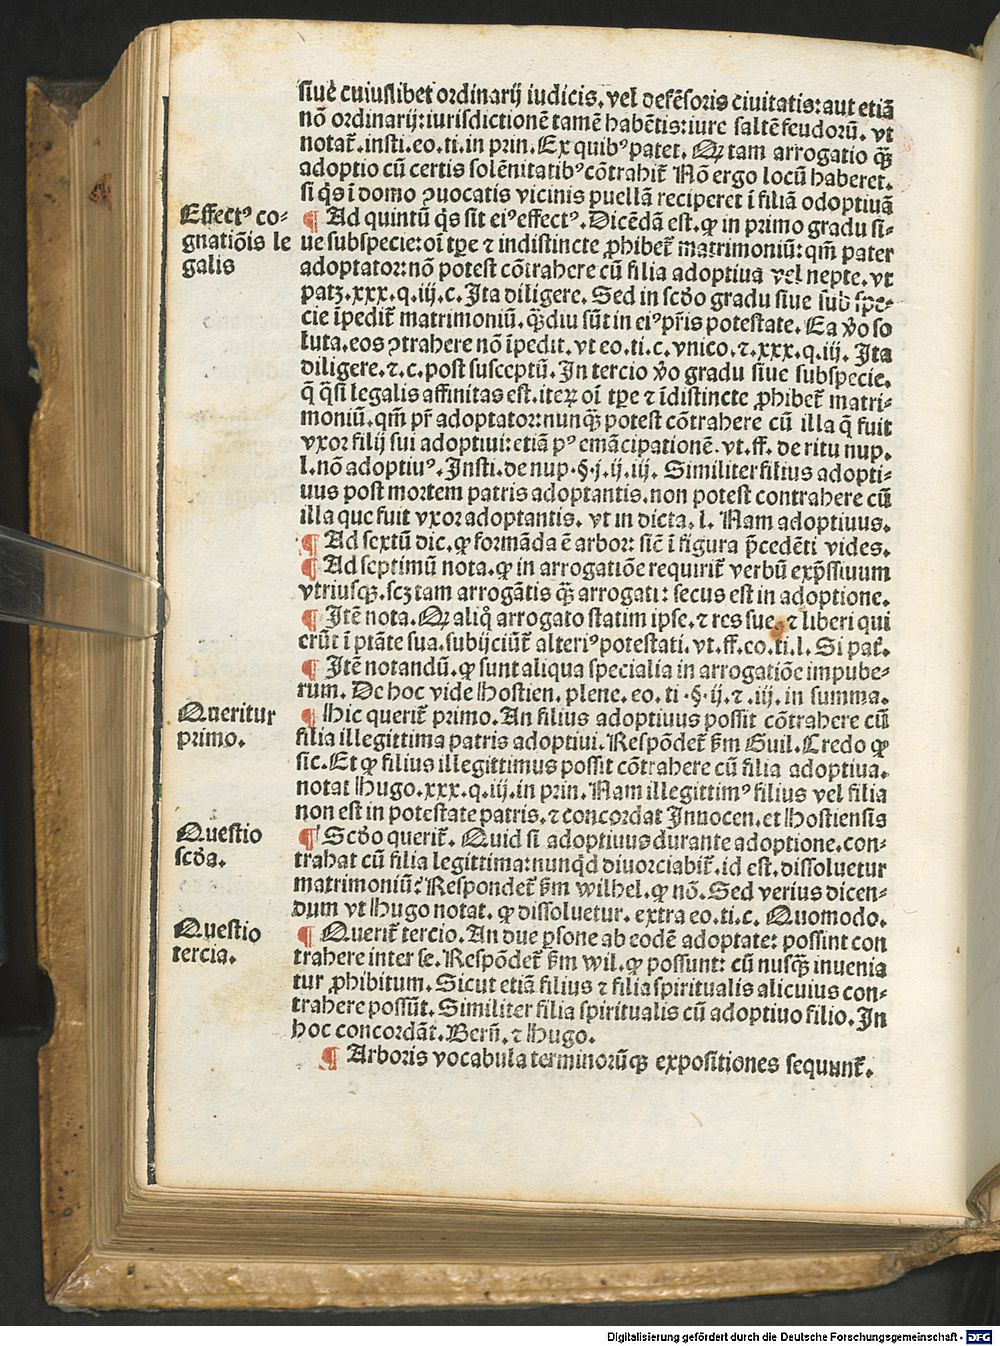 siue cuiuslibet ordinarij iudicis. vel defēsoris ciuitatis: aut etiā
nō ordinarij: iurisdictionē tamē habētis: iure saltē feudorū. vt
notat̄. insti. eo. ti. in prin. Ex quibꝰ patet. Qꝛ tam arrogatio qꝫ̄
adoptio cū certis solēnitatibꝰ cōtrahit̄ Nō ergo locū haberet.
si q̇s ī domo ꝯuocatis vicinis puellā reciperet ī filiā adoptiuā
Effectꝰ co-
gnatiōis le
galis
¶ Ad quintū q̇s sit eiꝰ effectꝰ. Dicēdā est. ꝙ in primo gradu si-
ue subspecie: oī tp̄e ⁊ indistincte ꝓhibet̄ matrimoniū: qm̄ pater
adoptator: nō potest cōtrahere cū filia adoptiua vel nepte. vt
patꝫ. xxx. q. iij. c. Ita diligere. Sed in scd̓o gradu siue sub spe-
cie īpedit̄ matrimoniū. qꝫ̄diu sūt in eiꝰ pr̄is potestate. Ea v̓o so
luta. eos ꝯtrahere nō īpedit. vt eo. ti. c. vnico. ⁊. xxx. q. iij. Ita
diligere. ⁊. c. post susceptū. In tercio v̓o gradu siue subspecie.
q̄ q̄si legalis affinitas est. iteꝝ oī tp̄e ⁊ īdistincte ꝓhibet̄ matri-
moniū. qm̄ pr̄ adoptator: nunqꝫ̄ potest cōtrahere cū illa q̄ fuit
vxor filij sui adoptiui: etiā pꝰ emācipationē. vt. ff. de ritu nup.
l. nō adoptiuꝰ. Insti. de nup. §. j. ij. iij. Similiter filius adopti-
uus post mortem patris adoptantis. non potest contrahere cū
illa que fuit vxor adoptantis. vt in dicta. l. Nam adoptiuus.
¶ Ad sextū dic. ꝙ formāda ē arbor: sic̄ ī figura p̄cedēti vides.
¶ Ad septimū nota. ꝙ in arrogatiōe requirit̄ verbū exp̄ssiuum
vtriusqꝫ. scꝫ tam arrogātis qꝫ̄ arrogati: secus est in adoptione.
¶ Itē nota. Qꝛ aliq̊ arrogato statim ipse. ⁊ res sue. ⁊ liberi qui
erūt ī ptāte sua. subijciūt̄ alteriꝰ potestati. vt. ff. eo. ti. l. Si pat̓.
¶ Itē notandū. ꝙ sunt aliqua specialia in arrogatiōe impube-
rum. De hoc vide Hostien. plene. eo. ti. §. ij. ⁊. iij. in summa.
Queritur
primo.
¶ Hic querit̄ primo. An filius adoptiuus possit cōtrahere cū
filia illegittima patris adoptiui. Respōdet̄ s̄m Guil. Credo ꝙ
sic. Et ꝙ filius illegittimus possit cōtrahere cū filia adoptiua.
notat Hugo. xxx. q. iij. in prin. Nam illegittimꝰ filius vel filia
non est in potestate patris. ⁊ concordat Innocen. et Hostiensis
Questio
scd̓a.
¶ Scd̓o querit̄. Quid si adoptiuus durante adoptione. con-
trahat cū filia legittima: nunq̇d diuorciabit̄. id est. dissoluetur
matrimoniū? Respondet̄ s̄m wilhel. ꝙ nō. Sed verius dicen-
dum vt Hugo notat. ꝙ dissoluetur. extra eo. ti. c. Quomodo.
Questio
tercia.
¶ Querit̄ tercio. An due ꝑsone ab eodē adoptate: possint con
trahere inter se. Respōdet̄ s̄m wil. ꝙ possunt: cū nusqꝫ̄ inuenia
tur ꝓhibitum. Sicut etiā filius ⁊ filia spiritualis alicuius con-
trahere possūt. Similiter filia spiritualis cū adoptiuo filio. In
hoc concordāt. Bern̄. ⁊ Hugo.
¶ Arboris vocabula terminorūqꝫ expositiones sequunt̄.
Digitalisierung gefördert durch die Deutsche Forschungsgemeinschaft - DFG